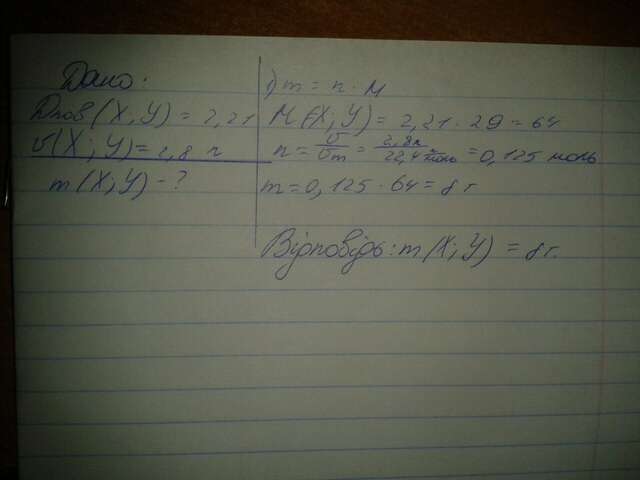 Дано:
Dпов (X, Y) = 2,21
V(X; Y) = 2,8 л
m (X; Y) - ?
1) m = n · M
M (X; Y) = 2,21 · 29 = 64
n = V/Vm = 2,8л/22,4 л/моль = 0,125 моль
m = 0,125 · 64 = 8 г
Відповідь: m (X; Y) = 8г.